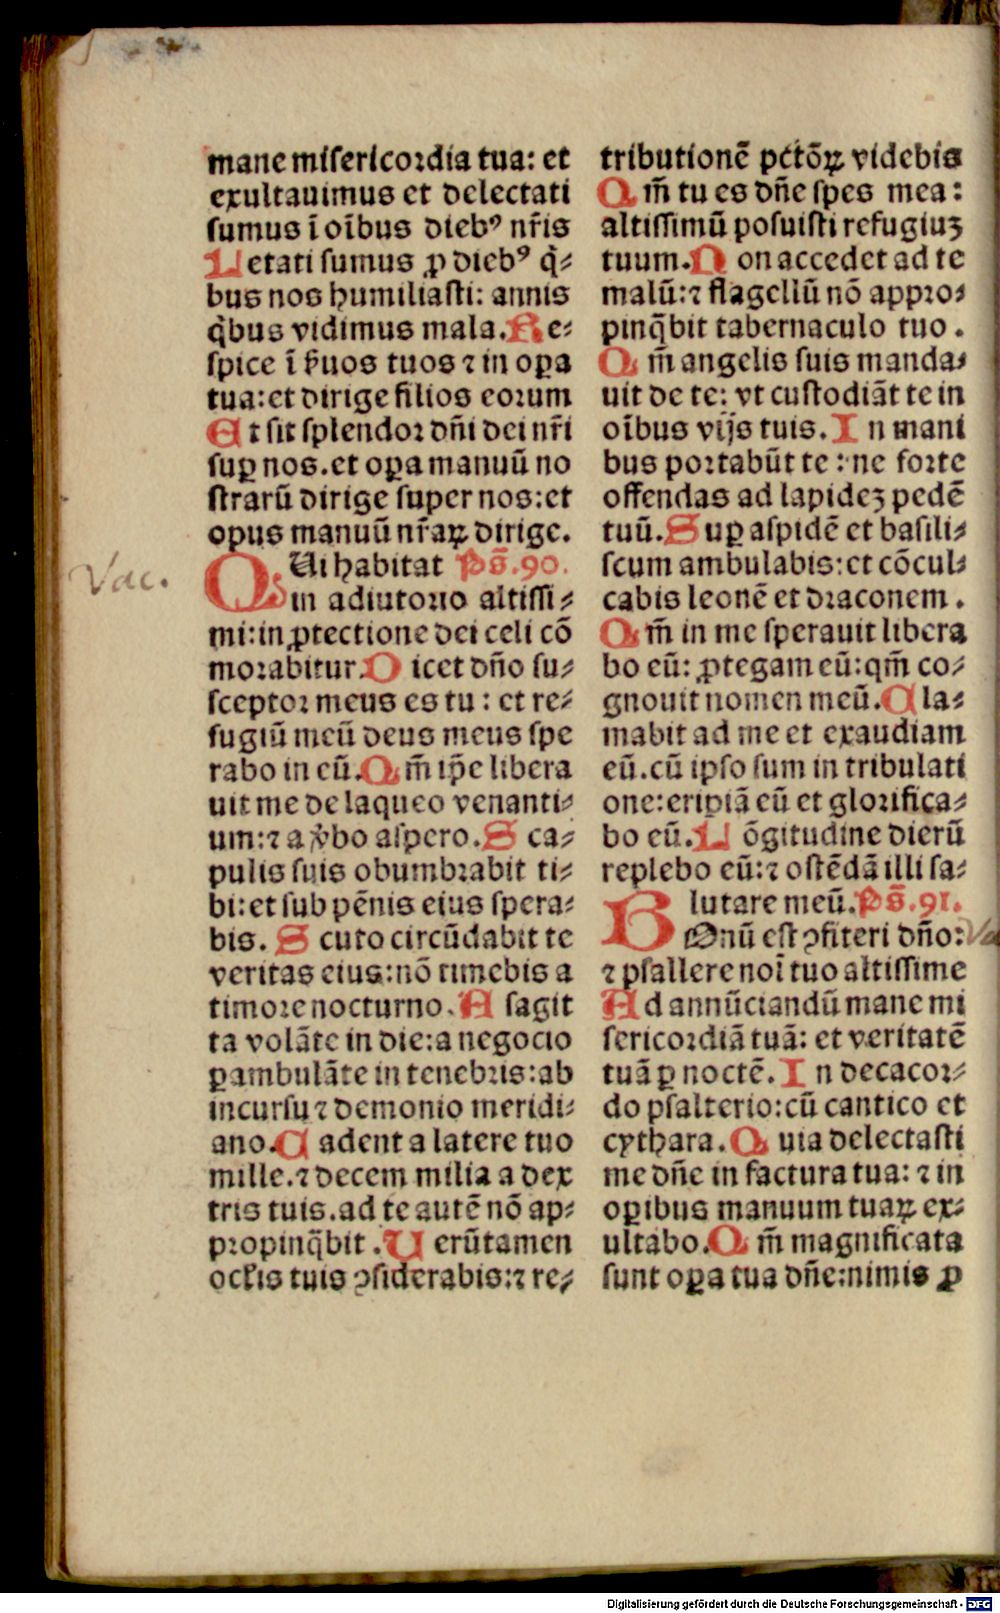 mane misericordia tua: et
exultauimus et delectati
sumus ī oībus diebꝰ nr̄is
Letati sumus ꝓ diebꝰ q̄⸗
bus nos humiliasti: annis
q̄bus vidimus mala. Re⸗
spice ī ẜuos tuos ⁊ in oꝑa
tua: et dirige filios eorum
Et sit splendor dn̄i dei nr̄i
suꝑ nos. et oꝑa manuū no
strarū dirige super nos: et
opus manuū nr̄aꝝ dirige.
QUi habitat Ps̄. 90.
in adiutorio altissi⸗
mi: in ꝓtectione dei celi cō
morabitur. Dicet dn̄o su⸗
sceptor meus es tu: et re⸗
fugiū meū deus meus spe
rabo in eū. Qm̄ ip̄e libera
uit me de laqueo venanti⸗
um: ⁊ a v̄bo aspero. Sca⸗
pulis suis obumbrabit ti⸗
bi: et sub pēnis eius spera⸗
bis. Scuto circūdabit te
veritas eius: nō timebis a
timore nocturno. A sagit
ta volāte in die: a negocio
ꝑambulāte in tenebris: ab
incursu ⁊ demonio meridi⸗
ano. Cadent a latere tuo
mille. ⁊ decem milia a dex
tris tuis. ad te autē nō ap⸗
propinq̄bit. Uerūtamen
ocl̄is tuis ꝯsiderabis: ⁊ re⸗
Vac.
tributionē pctōꝝ videbis
Qm̄ tu es dn̄e spes mea:
altissimū posuisti refugiuȝ
tuum. Non accedet ad te
malū: ⁊ flagellū nō appro⸗
pinq̄bit tabernaculo tuo.
Qm̄ angelis suis manda⸗
uit de te: vt custodiāt te in
oībus vijs tuis. In mani
bus portabūt te: ne forte
offendas ad lapideȝ pedē
tuū. Suꝑ aspidē et basili⸗
scum ambulabis: et cōcul⸗
cabis leonē et draconem.
Qm̄ in me sperauit libera
bo eū: ꝓtegam eū: qm̄ co⸗
gnouit nomen meū. Cla⸗
mabit ad me et exaudiam
eū. cū ipso sum in tribulati
one: eripiā eū et glorifica⸗
bo eū. Lōgitudine dierū
replebo eū: ⁊ ostēdā illi sa⸗
lutare meū. Ps̄. 91.
BOnū est ꝯfiteri dn̄o:
⁊ psallere noī tuo altissime
Ad annūciandū mane mi
sericordiā tuā: et veritatē
tuā ꝑ noctē. In decacor⸗
do psalterio: cū cantico et
cythara. Quia delectasti
me dn̄e in factura tua: ⁊ in
oꝑibus manuum tuaꝝ ex⸗
ultabo. Qm̄ magnificata
sunt oꝑa tua dn̄e: nimis ꝓ
Digitalisierung gefördert durch die Deutsche Forschungsgemeinschaft - DFG